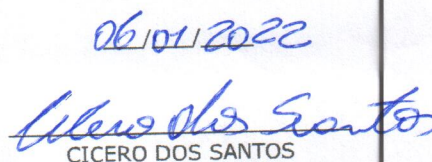 06/01/2022
Cícero dos Santos
CICERO DOS SANTOS